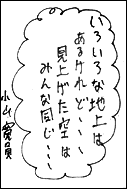 いろいろな地上は
あるけれど、、、
見上げた空は
みんな同じ、、、
小山賓員